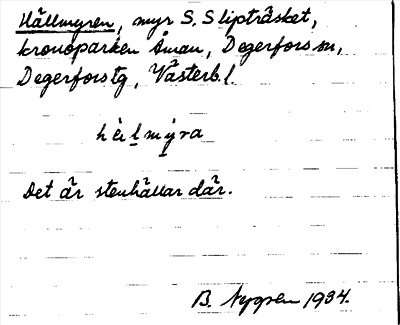 Hällmyren, myr S. Slipträsket,
kronoparken Åman, Degerfors sn,
Degerfors tg, Västerb. l.
hèi̭l̠mỳ̠ra
Det är stenhällar där.
B. Nygren 1934.